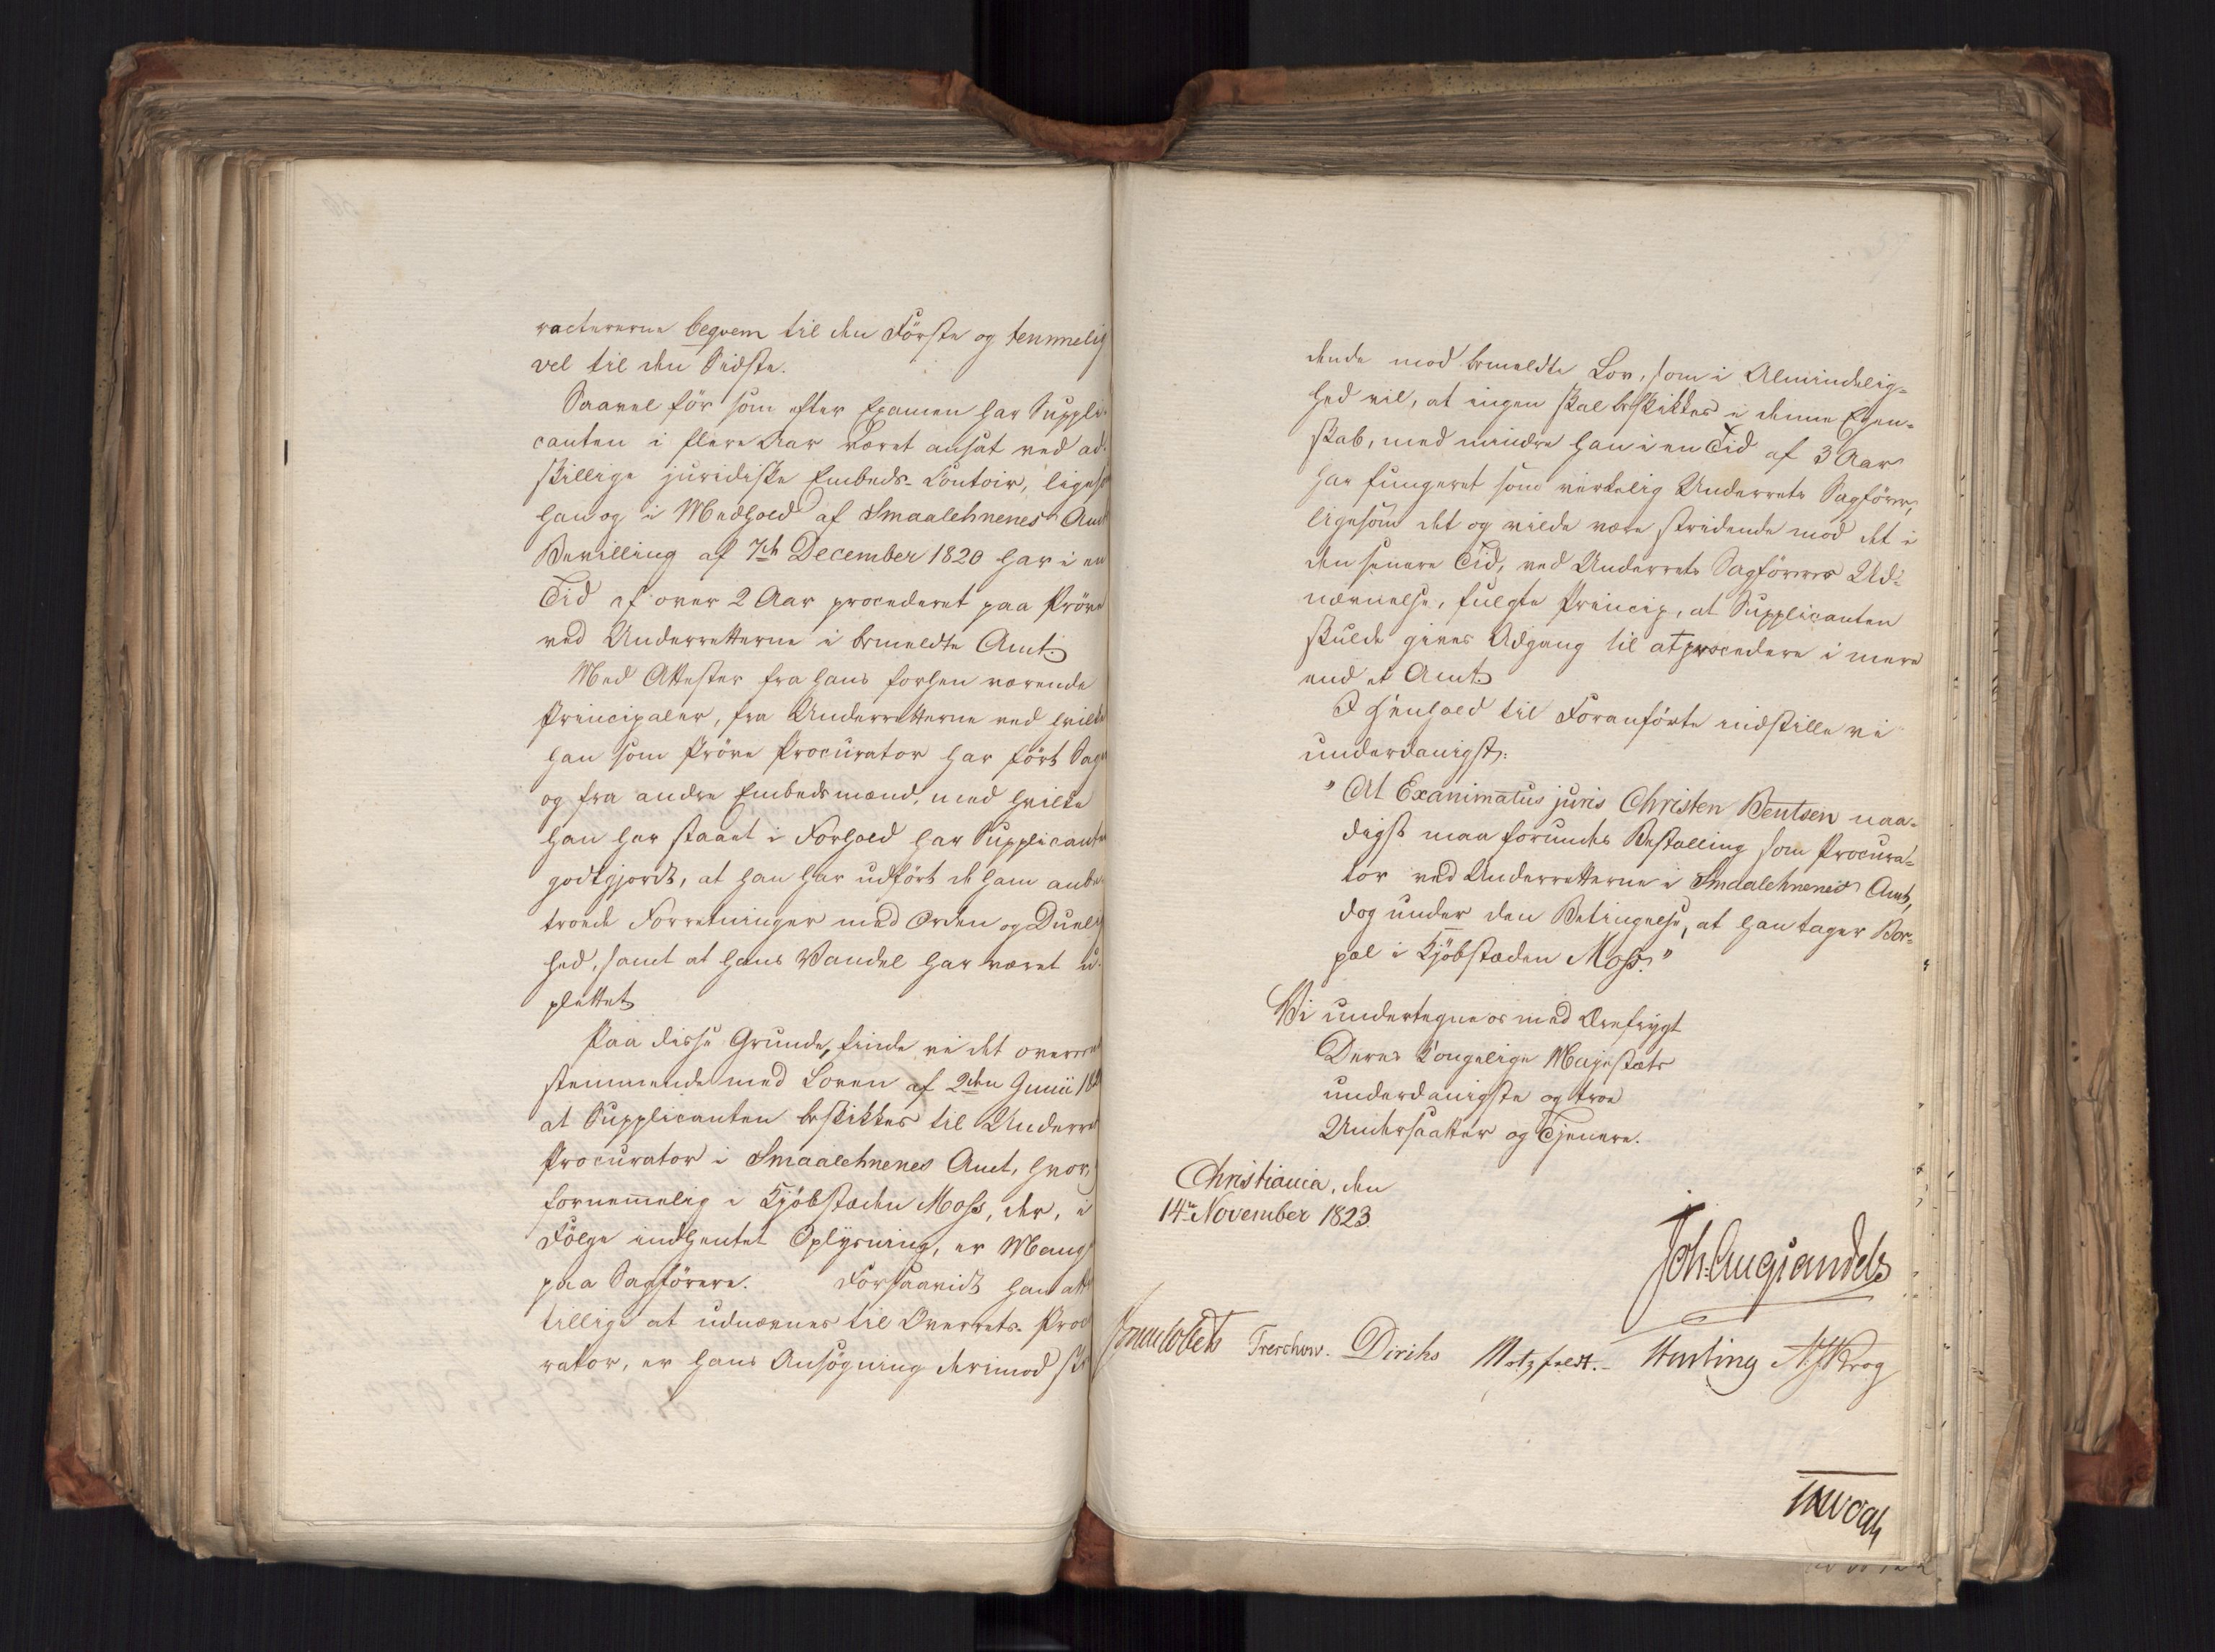 racterene beqvem til den Förste og temmelig
vel til den Sidste.
Saavel för som efter Examen har Suppli-
canten i flere Aar været ansat ved ad-
skillige juridiske Embeds-Contoir, ligesom
han og i Medhold af Smaalehnenes Amts
Bevilling af 7de December 1820 har i en
Tid af over 2 Aar procederet paa Pröve
ved Underretterne i bemeldte Amt.
Med Attester fra hans forhen værende
Principaler, fra Underretterne ved hvilke
han som Pröve Procurator har fört Sager
og fra andre Embedsmænd, med hvilke
han har staaet i Forhold har Supplicanten
godtgjordt, at han har udfört de ham anbe-
troede Forretninger med Orden og Duelig-
hed, samt at hans Vandel har været u-
plettet.
Paa disse Grunde, finde vi det overeens
stemmende med Loven af 2den Junii
at Supplicanten beskikkes til Underrets
Procurator i Smaalehnenes Amt, hvor,
fornemmelig i Kjöbstæden Moss, der, i
Fölge indhentet Oplysning, er Mangel
paa Sagförere. Forsaavidt han
tillige at udnævnes til Overrets-Procu
rator, er hans Ansögning derimod stri
dende mod bemeldte Lov, som i Almindelig-
hed vil, at ingen skal beskikkes i denne Egen-
skab, med mindre han i en Tid af 3 Aar
har fungeret som virkelig Underrets Sagförer,
ligesom det og vilde være stridende mod det i
den senere Tid, ved Underrets Sagföreres Ud-
nævnelse, fulgte Princip, at Supplicanten
skulde gives Adgang til at procedere i mere
end et Amt.
I Henhold til Foranförte indstille vi
underdanigst:
"At Examinatus juris Christen Bentsen naa-
digst maa forundes Bestalling som Procura-
tor ved Underretterne i Smaalehnenes Amt,
dog under den Betingelse, at han tager Bo-
pæl i Kjöbstæden Moss."
Vi undertegne os med Ærefrygt
Deres Kongelige Majestæts
underdanigste og troe
Undersaatter og Tjenere.
Christiania, den
14de November 1823.
Joh: Aug: Sandels
Sommerhielm Treschow. Diriks Motzfeldt. Hesting Krog
Vogt